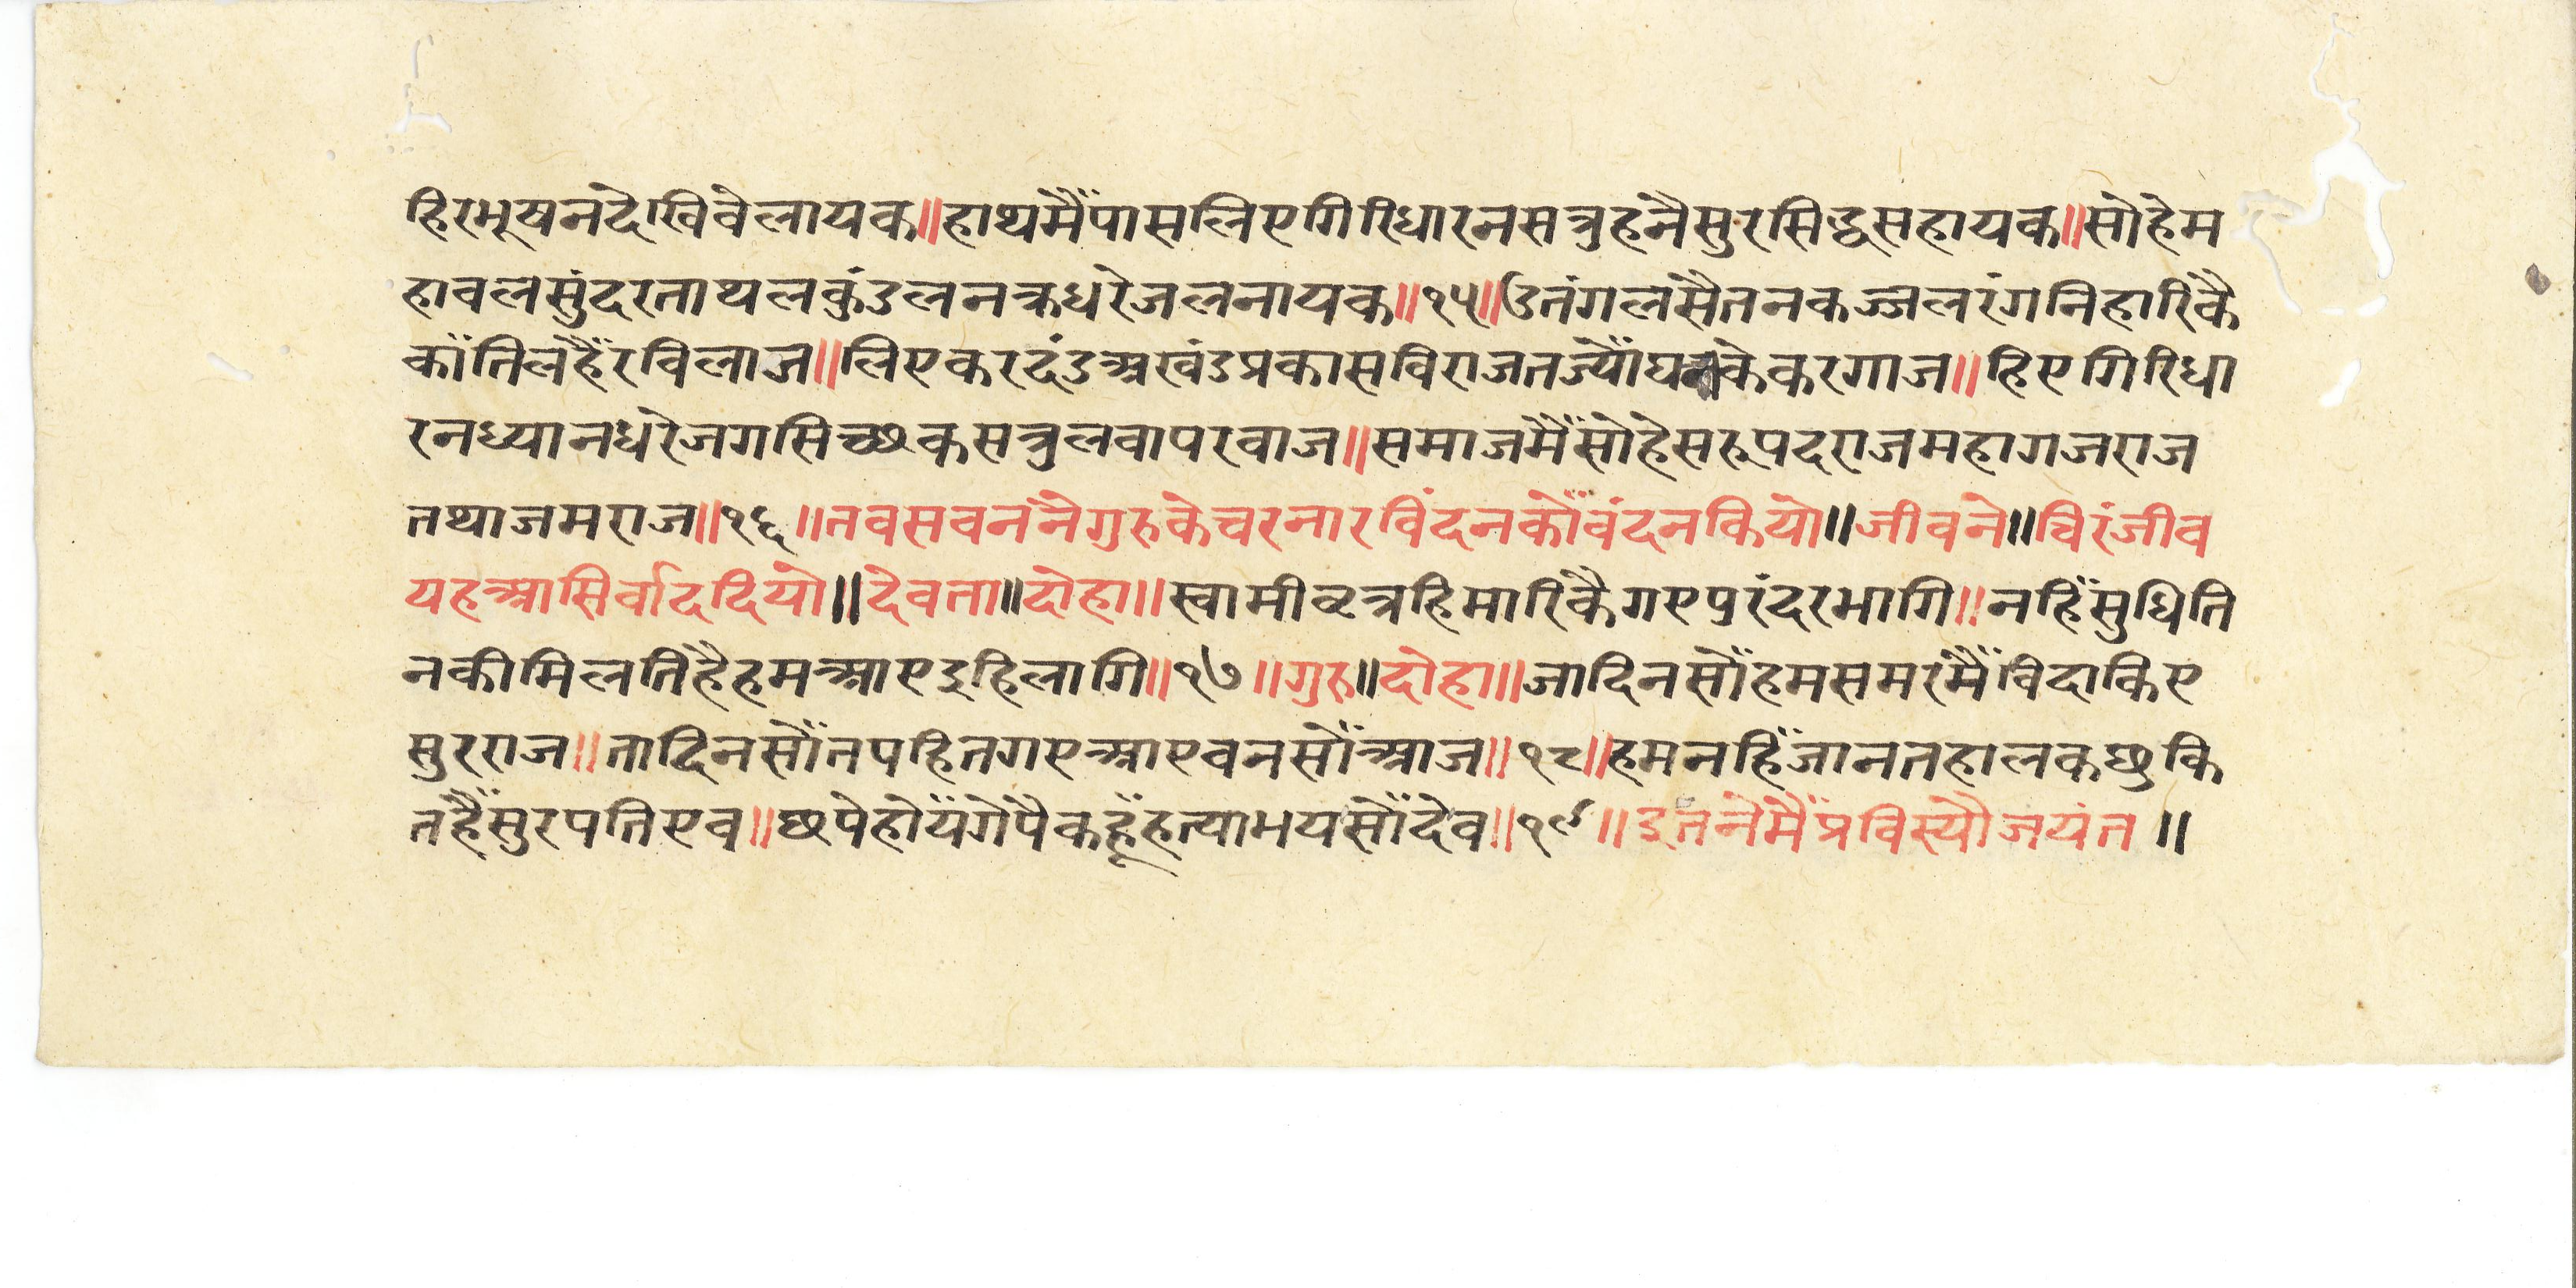 हिरभूषनदेखिवेलायक॥हाथमैँपासलिएगिरिधारनसत्रुहनैसुरसिद्धसहायक॥सोहेम
हावलसुंदरताथलकुंडलनक्रधरेजलनायक॥१५॥उतंगलसैतनकज्जलरंगनिहारिकै
काँतिलहैँरविलाज॥लिएकरदंडअखंडप्रकासविराजतज्यौँघनकेकरगाज॥हिएगिरिधा
रनध्यानधरेजगसिच्छकसत्रुलवापरवाज॥समाजमैँसोहेसरूपदराजमहागजराज
तथाजमराज॥१६॥तवसवननैगुरुकेचरनारविंदनकोँवंदनकियो॥जीवने॥चिरंजीव
यहआसिर्वाददियो॥देवता॥दोहा॥स्वामीव्रत्रहिमारिकैगएपुरंदरभागि॥नहिँसुधिति
नकीमिलतिहैहमआएइहिलागि॥१७॥गुरु॥दोहा॥जादिनसोँहमसमरमैँविदाकिए
सुरराज॥तादिनसोँतपहितगएआएवनसोँआज॥१८॥हमनहिँजानतहालकछुकि
तहैँसुरपतिएव॥छपेहोयँगेपैकहूँहत्याभयसोँदेव॥१९॥इतनेमैँप्रविस्यौजयंत॥